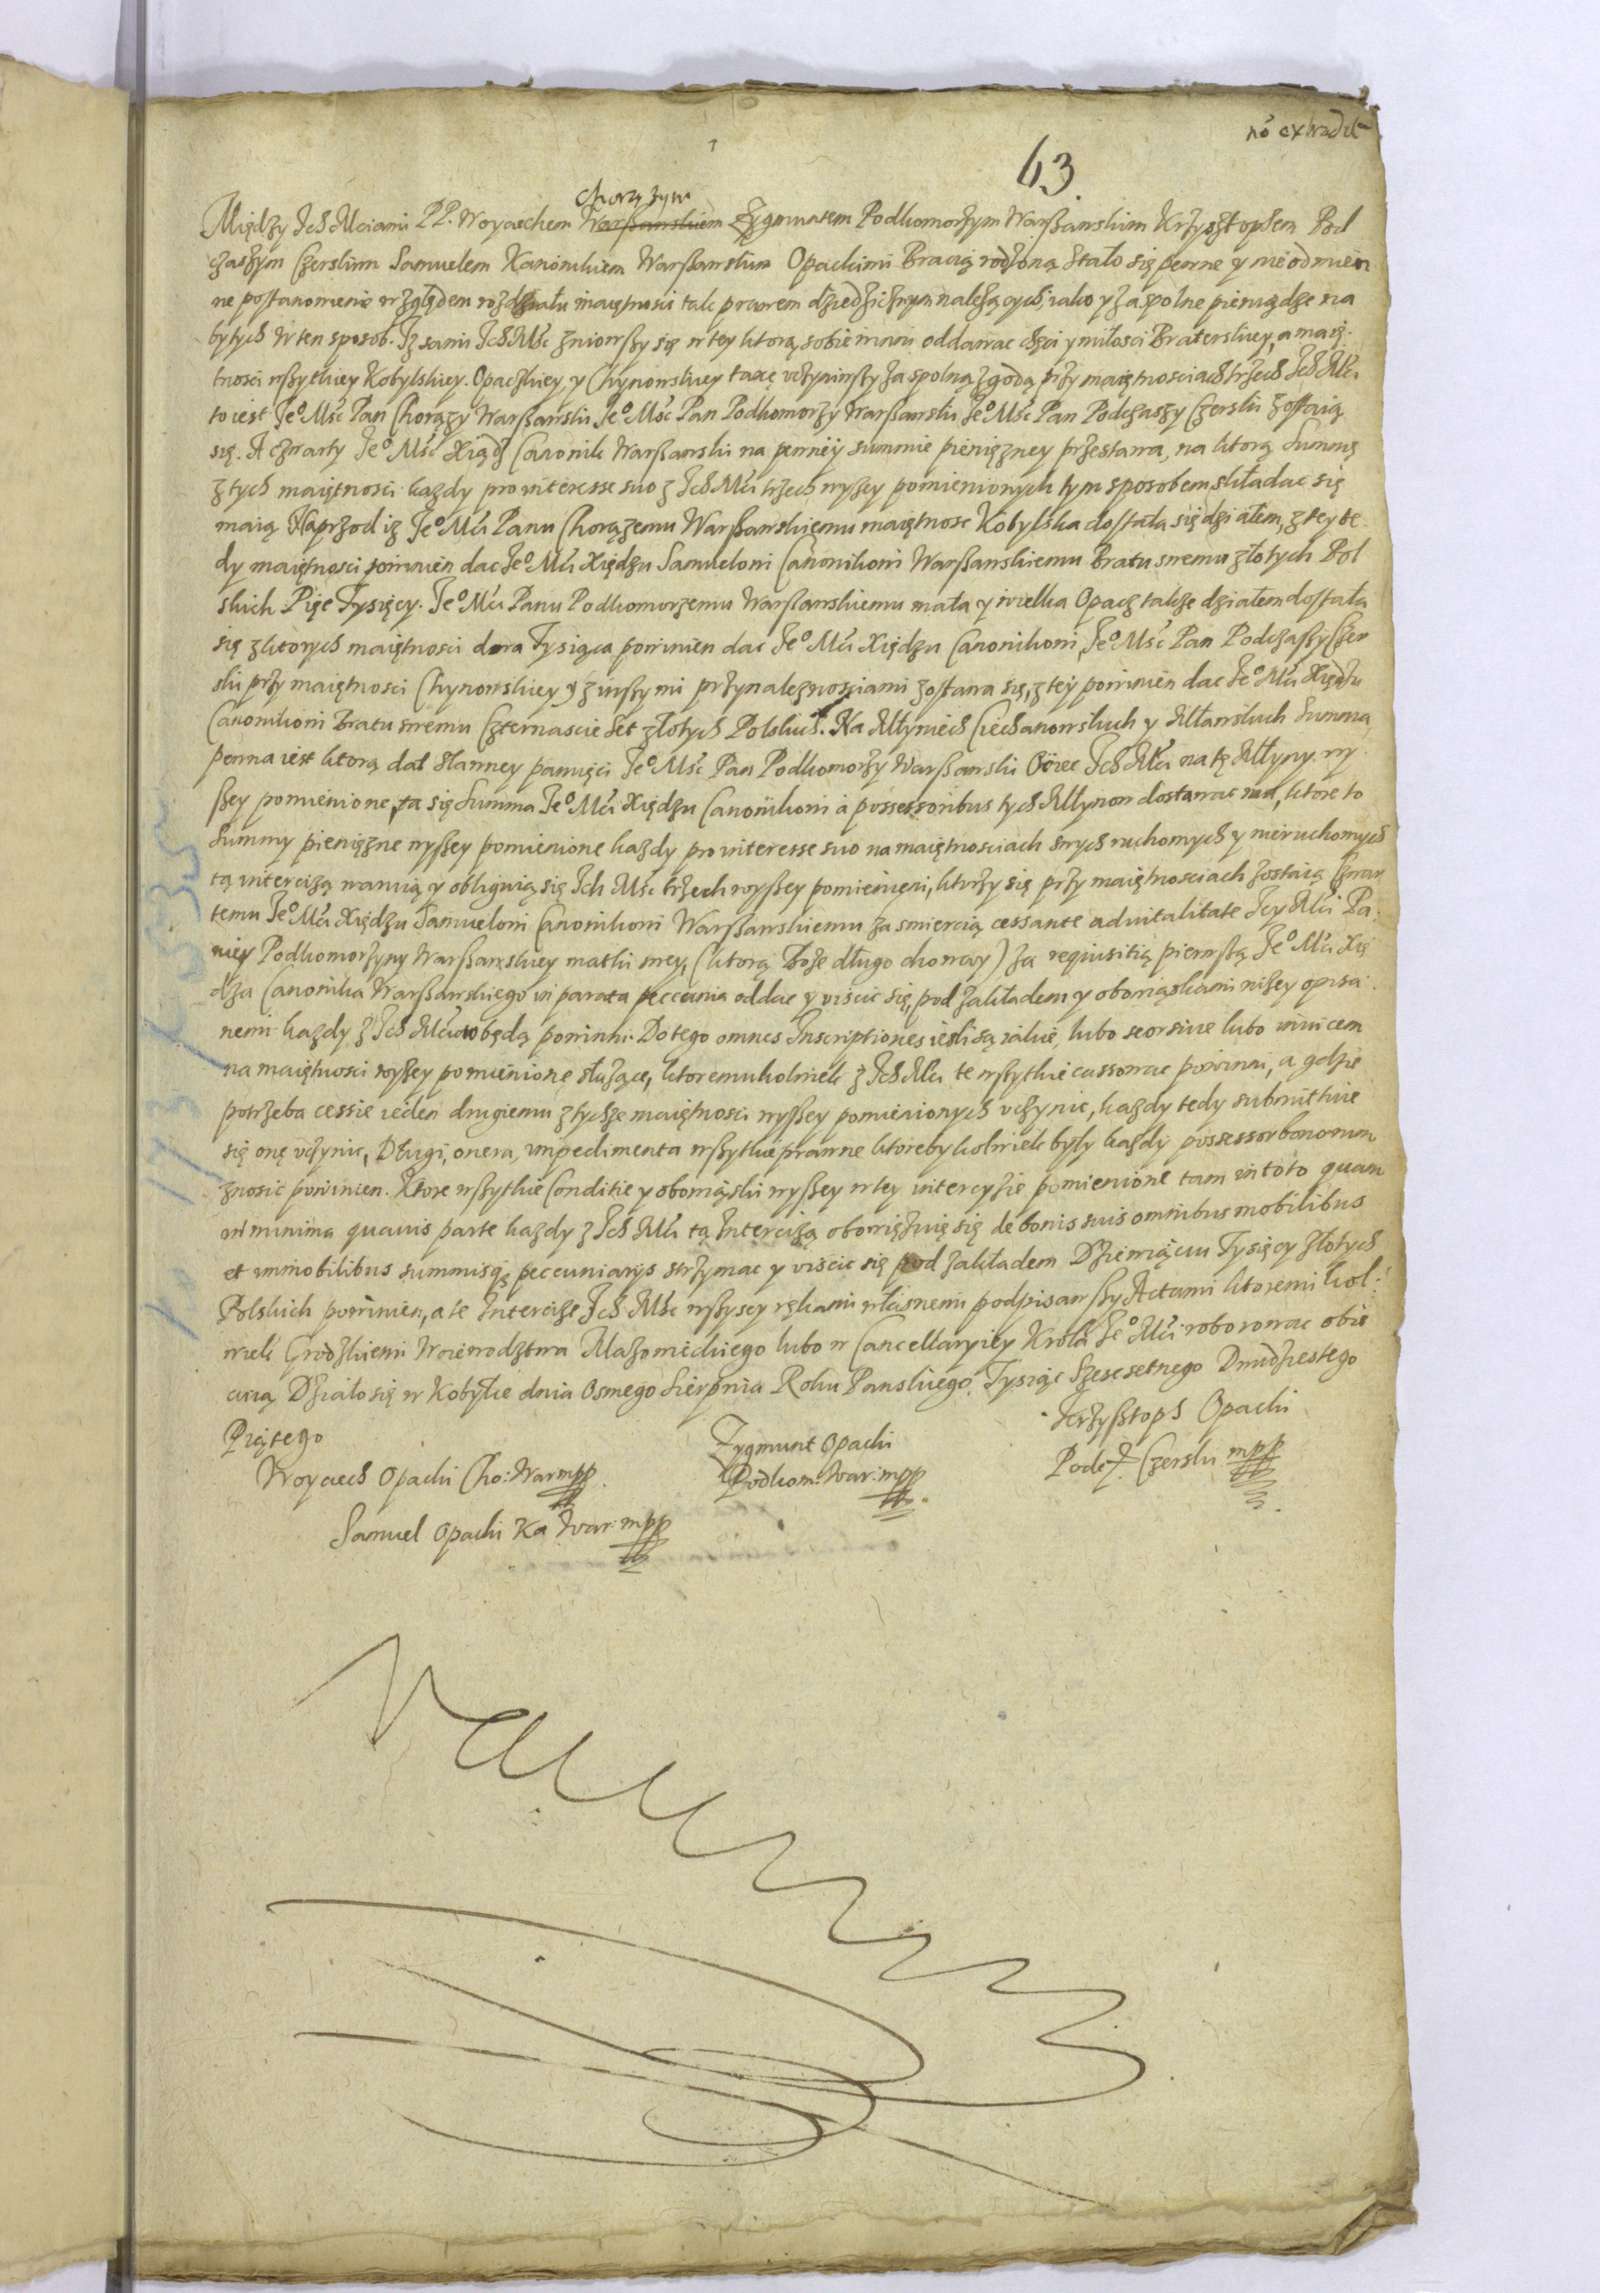 no extradit
63
Chorązym
Między Ich Mciami PP. Woyciechem Warßawskiem Zygmuntem Podkomorzym Warßawskim Krzysztophem Pod
czaszym Czerskim Samuelem Kanonikiem Warßawskim Opackimi Bracią rodzoną stało się pewne y nieodmien
ne postanowienie względem rozdziału maiętnosci tak prawem dziedzicznym nalezących, iako y za spolne pieniądze na
bytych w ten sposob. Iz sami Ich Mśc zniowszy się w tey ktorą sobie winni oddawac chęci y miłosci Braterskiey, a maię
tnosci wszytkiey Kobylskiey. Opaczkiey, y Chynowskiey taxę uczyniwszy za spolną zgodą przy maiętnosciach trzech Ich Mci
to iest Je° Mśc Pan Chorązy Warßawski, Je° Mśc Pan Podkomorzy Warßawski Je° Mśc Pan Podczaszy Czerski zostaią
się. A czwarty Je° Mśc Xiądz Canonik Warßawski na pewney summie pienięzney przestawa, na ktorą Summę
z tych maiętnosci kazdy pro interesse suo z Ich Mci trzech wyßey pomienionych tym sposobem składac się
maią Naprzod iz Je° Mci Panu Chorązemu Warßawskiemu maiętnosc Kobylska dostała się działem, z tey te
dy maiętnosci powinien dac Je° Mci Xiędzu Samuelowi Canonikowi Warßawskiemu Bratu swemu złotych Pol
skich Pięc Tysięcy. Je° Mci Panu Podkomorzemu Warßawskiemu mała y wielka Opacz takze działem dostała
się z ktorych maiętnosci dwa Tysiąca powinien dac Je° Mci Xiędzu Canonikowi, Je° Mśc Pan Podczaßy Czer
ski przy maiętnosci Chynowskiey y z inszymi przynaleznosciami zostawa się, z tey powinien dac Je° Mci Xiędzu
Canonikowi Bratu swemu Czternascie Set złotych Polskich. Na Młyniech Ciechanowskich y Mławskich Summa
pewna iest ktorą dał sławney pamięci Je° Mśc Pan Podkomorzy Warßawski Ociec Ich Mci na tę Młyny wy
ßey pomienione, ta się Summa Je° Mci Xiędzu Canonikowi a possessoribus tych Młynow dostawac ma, ktore to
Summy pienięzne wyßey pomienione kazdy pro interesse suo na maiętnosciach swych ruchomych y nieruchomych
tą intercizą waruią y obliguią się Ich Mśc trzech wyßey pomienieni, ktorzy się przy maiętnosciach zostaią Czwar
temu Je° Mci Xiędzu Samuelowi Canonikowi Warßawskiemu za smiercią cessante advitalitate Jey Mci Pa
niey Podkomorzyny Warßawskiey matki swey, (ktorą Boze długo choway) za requisitią pierwszą Je° Mci Xię
dza Canonika Warßawskiego in parata peccunia oddac y uiscic się, pod zakładem y obowiąskami nizey opisa
nemi kazdy z Ich Mciow będą powinni. Do tego omnes Inscriptiones iesli są iakie, lubo seorsive lubo invicem
na maiętnosci wyßey pomienione słuzące, ktoremukolwiek z Ich Mci te wszytkie cassowac powinni, a gdzie
potrzeba cessie ieden drugiemu z tychze maiętnosci wyßey pomienionych uczynic, kazdy tedy submittuie
się onę uczynic, Długi, onera, impedimenta wszytkie prawne ktorebykolwiek były kazdy possessor bonorum
znosic powinien. Ktore wszytkie Conditie y obowiąski wyßey w tey intercyzie pomienione tam in toto quam
in minima quavis parte kazdy z Ich Mci tą Intercizą obowięzuie się de bonis suis omnibus mobilibus
et immobilibus summisq̨ peccuniarijs strzymac y uiscic się pod zakładem Dziewiąciu Tysięcy złotych
Polskich powinien, a te Intercize Ich Mśc wszyscy rękami własnemi podpisawszy Actami ktoremikol
wiek Grodzkiemi Woiewodztwa Mazowieckiego lubo w Cancellaryiey Krola Je° Mci roborowac obie
cuią Działo się w Kobyłce dnia Osmego Sierpnia Roku Panskiego Tysiąc Szescsetnego Dwudziestego
Piątego
Woyciech Opacki Cho: War mpp
Zygmunt Opacki
Podkom: War: mpp
Krzysztoph Opacki
Podcz: Czerski mpp
Samuel Opacki Ka War: mpp